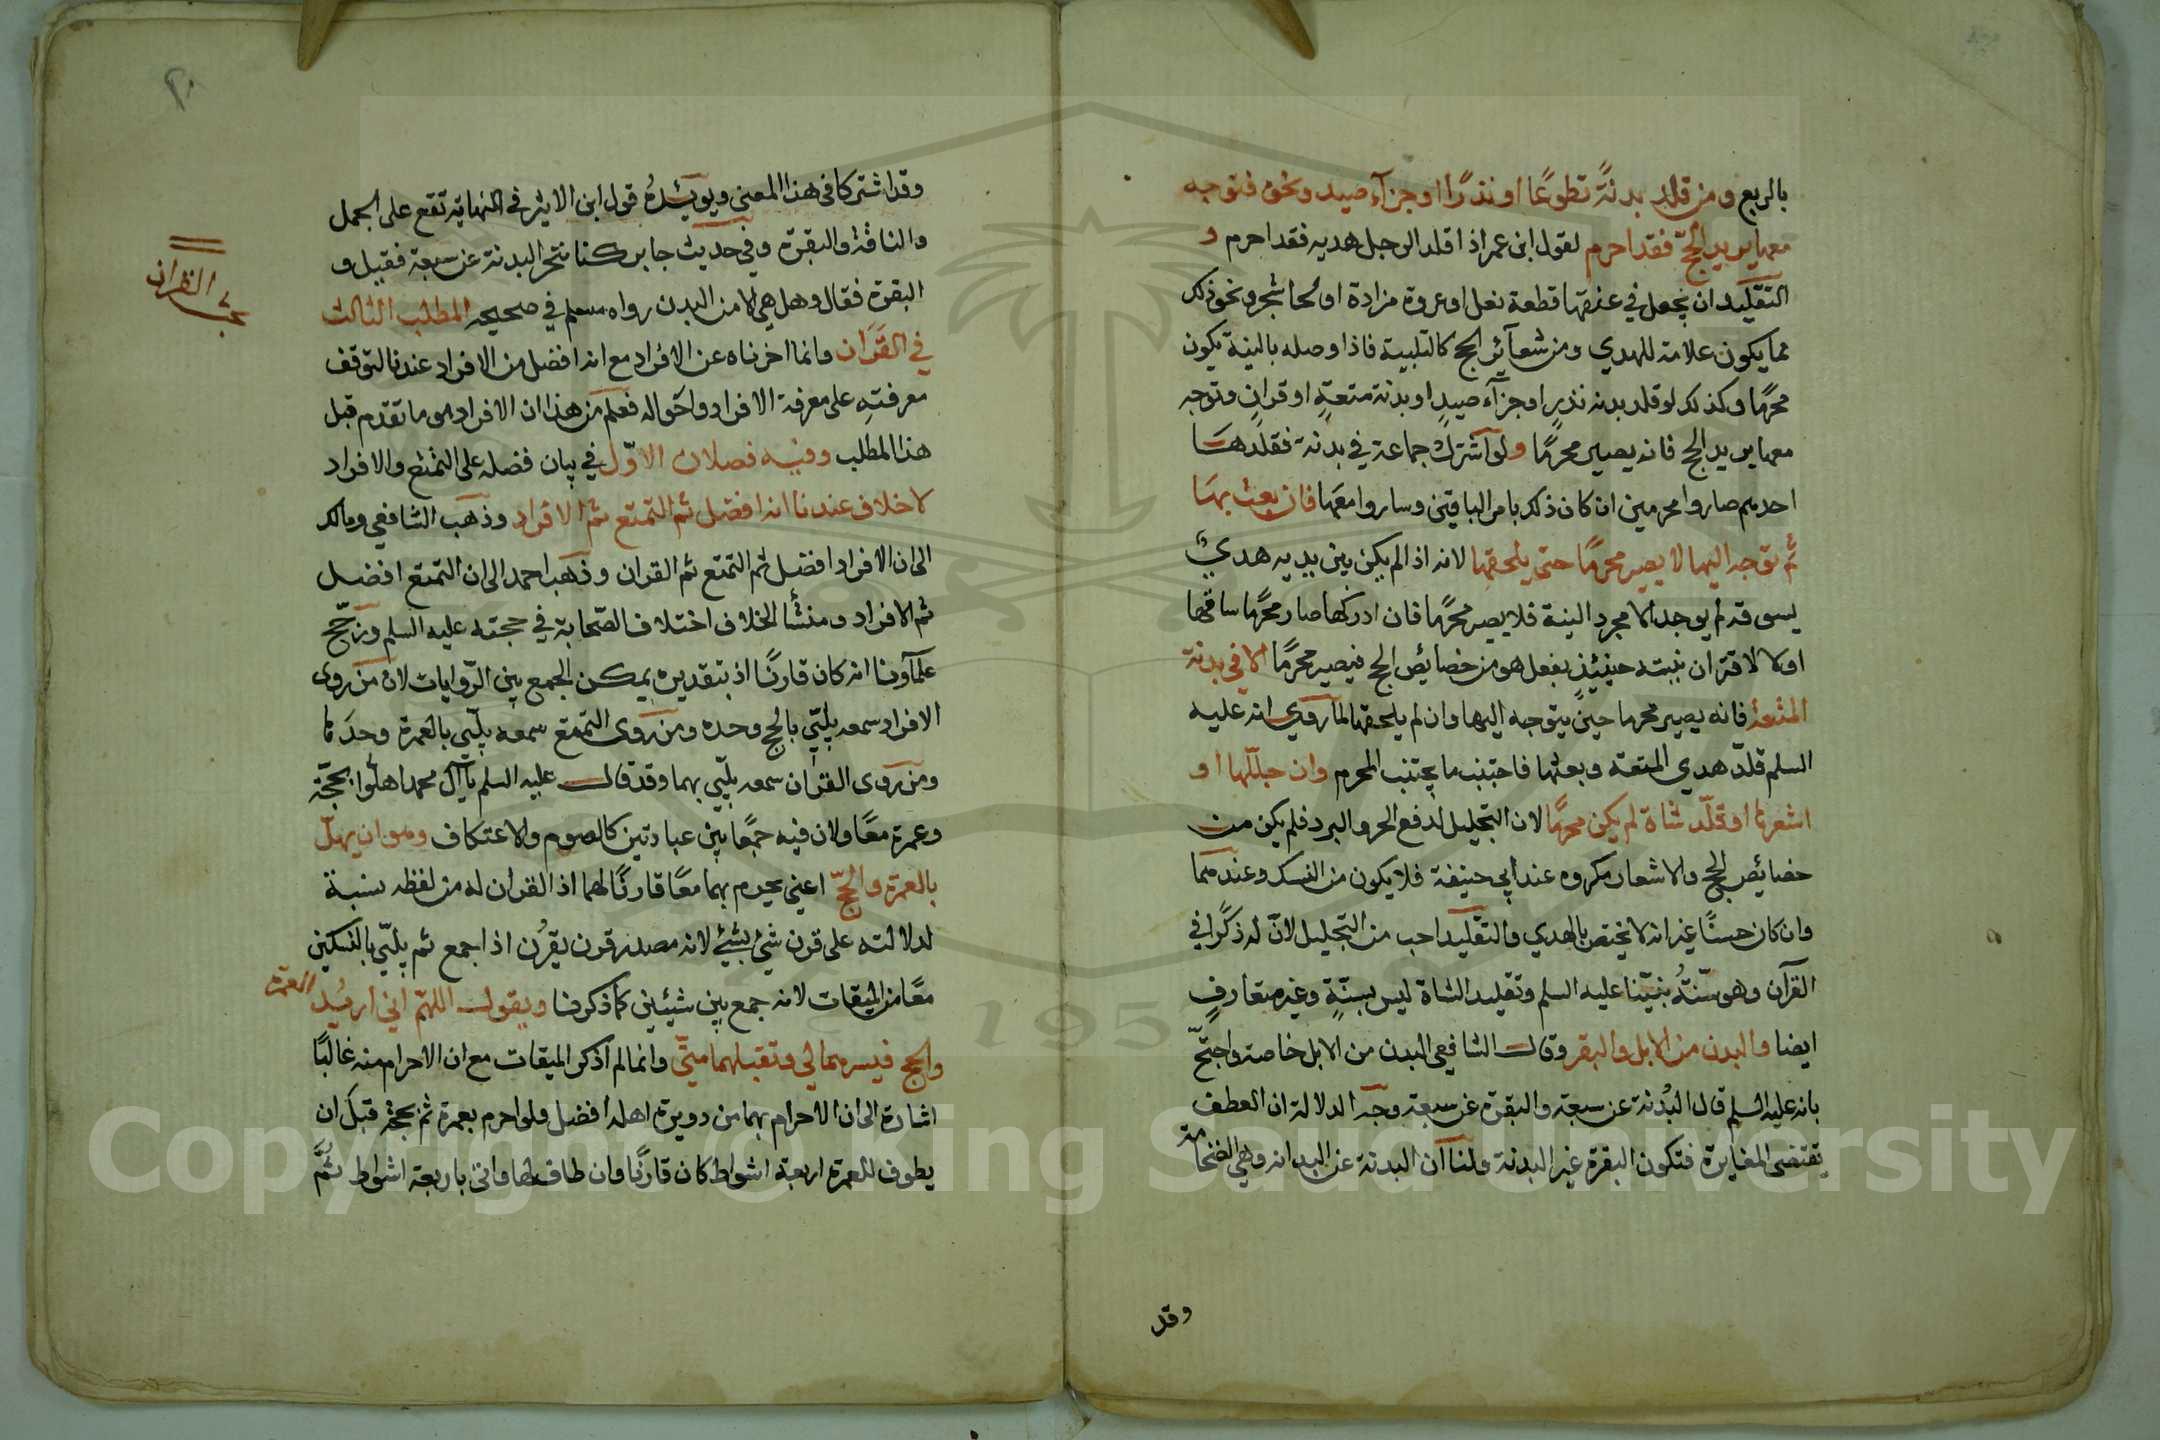 بالربع ومن قلد بدنةً تطوعًا او نذرًا او جزآء صيد ونحوه فتوجه
معها يريد الحجّ فقد احرم لقول ابن عمر اذا قلد الرجل هديه فقد احرم و
التقليد ان يجعل في عنقها قطعة نعل او عروة مزادة او لحا شجر ونحو ذلك
مما يكون علامة للهدي ومن شعآئر الحج كالتلبية فاذا وصله بالنية يكون
محرمًا وكذلك لو قلد بدنه نذرٍ او جزآء صيدٍ او بدنة متعةٍ او قرانٍ وتوجه
معها يريد الحج فانه يصير محرمًا ولو اشترك جماعة في بدنة فقلدها
احدهم صاروا محرمين ان كان ذلك بامر الباقين وساروا معها فان بعث بها
ثم توجه اليها لا يصير محرمًا حتى يلحقها لانه اذا لم يكن بين يديه هديٌ
يسوقه لم يوجد الا مجرد النية فلا يصير محرمًا فان ادركها صار محرمًا ساقها
اولا لاقتران نيته حينئذٍ بفعل هو من خصائص الحج فيصير محرمًا الا في بدنة
المتعة فانه يصير محرما حين يتوجه اليها وان لم يلحقها لما روي انه عليه
السلم قلّد هدي المتعة وبعثها فاجتنب ما يجتنب المحرم وان جلّلها او
اشعرها او قلّد شاة لم يكن محرمًا لان التجليل لدفع الحر والبرد فلم يكن من
خصائص الحج والاشعار مكروه عند ابي حنيفة فلا يكون من النسك وعندهما
وان كان حسنًا غير انه لا يختص بالهدي والتقليد احب من التجليل لانّ له ذكرًا في
القرآن وهو سنّةُ نبيّنا عليه السلم وتقليد الشاة ليس بسنّةٍ وغير متعارفٍ
ايضا والبدن من الابل والبقر وقال الشافعي البدن من الابل خاصة واحتجّ
بانه عليه السلم قال البُدنة عن سبعة والبقرة عن سبعة وجه الدلالة ان العطف
يقتضى المغايرة فتكون البقرة غير البدنة ولنا ان البدنة عن البدانه وهي الضخامة
وقد
وقد اشتركا في هذا المعنى ويؤيدهُ قول ابن الاثير في النهاية تقع على الجمل
والناقة والبقرة وفي حديث جابر كنا ننحر البدنة عن سبعة فقيل و
البقرة فقال وهل هي الا من البدن رواه مسلم في صحيحه المطلب الثالث
في القرَان وانما اخرناه عن الافراد مع انه افضل من الافراد عندنا لتوقف
معرفتهِ على معرفة الافراد واحواله فعلم من هذا ان الافراد هو ما تقدم قبل
هذا المطلب وفيه فصلان الاوّل في بيان فضله على التمتع والافراد
لا خلاف عندنا انه افضل ثم التمتع ثم الافراد وذهب الشافعي ومالك
الى ان الافراد افضل ثم التمتع ثم القران وذهب احمد الى ان التمتع افضل
ثم الافراد ومنشأ الخلاف اختلاف الصّحابة في حجته عليه السلم ورَجّح
علمآونا انه كان قارنًا اذ بتقديره يمكن الجمع بين الرّوايات لان من روى
الافراد سمعه يلبّي بالحج وحده ومن روى التمتع سمعه يلبّي بالعمرة وحدَها
ومن روى القرَان سمعه يلبّي بهما وقد قال عليه السلم يآل محمد اهلّوا بحجّة
وعمرة معًا ولان فيه جمعًا بين عبادتين كالصوم والاعتكاف وهو ان يهلّ
بالعمرة والحجّ اعني يحرم بهما معًا قارنًا لهما اذ القران له من لفظه نسبة
لدلالته على قرن شئ بشيْ لانه مصدر قرن يقرُن اذ اجمع ثم يلبّي بالنسكين
معًا من الميقات لانه جمع بين شيئين كما ذكرنا ويقول اللهمّ اني اريُد العمرة
والحج فيسرهما لي وتقبلهما منّي وانما لم اذكر الميقات مع ان الاحرام منه غالبًا
اشارة الى ان الاحرام بهما من دويرة اهله افضل ولو احرم بعمرة ثم بحجة قبلَ ان
يطوف للعمرة اربعة اشواط كان قارنًا وان طاف لها واتى باربعة اشواط ثُمَّ
القران